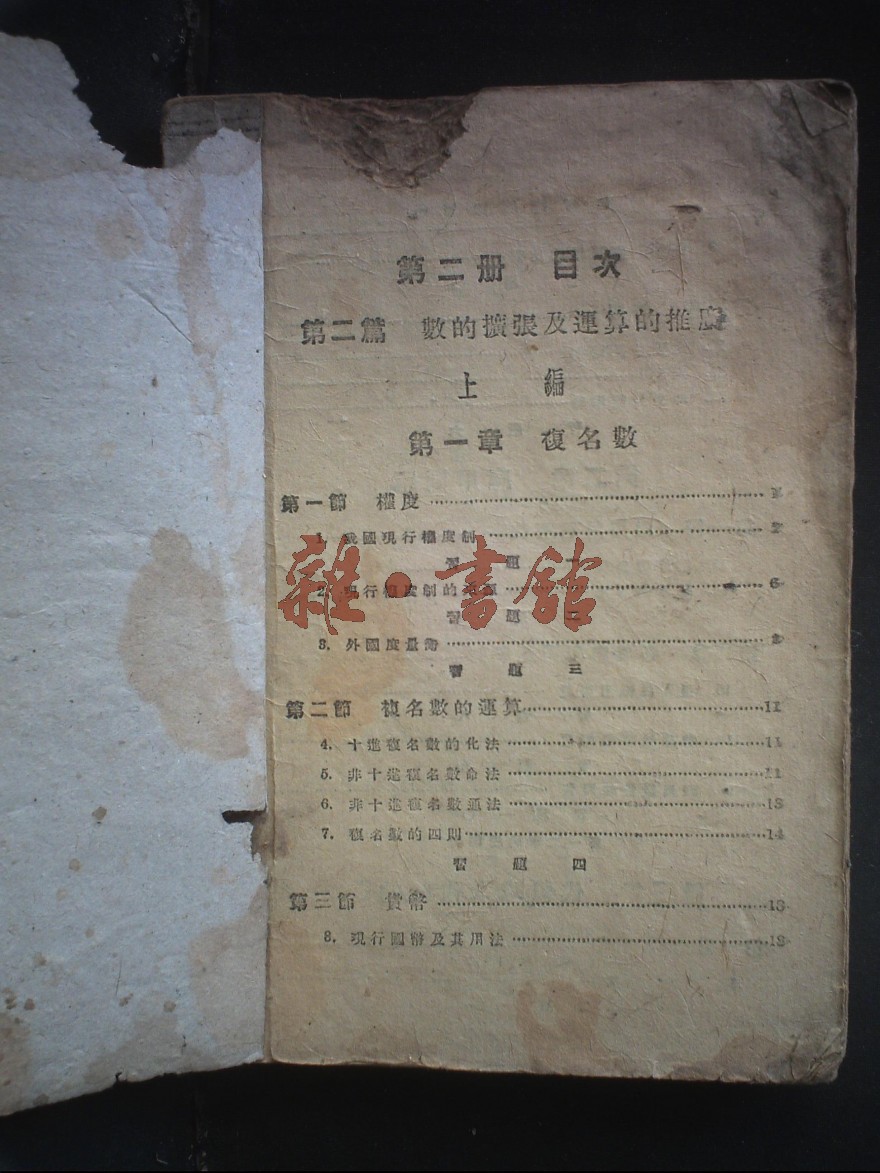 第二册 目次
第二篇 數的擴張及運算的推廣
上 編
第一章 複名數
第一節 權度 1
1. 我國現行權度制 2
習 題 一
2. 現行權度制的 6
習 題 二
雜·書館
3. 外國度量衡
習 題 三
第二節 複名數的運算 11
4. 十進複名數的化法 11
5. 非十進複名數命法 11
6. 非十進複名數通法 13
7. 複名數的四則 14
習 題 四
第三節 貨幣 18
8. 現行國幣及其用法 18